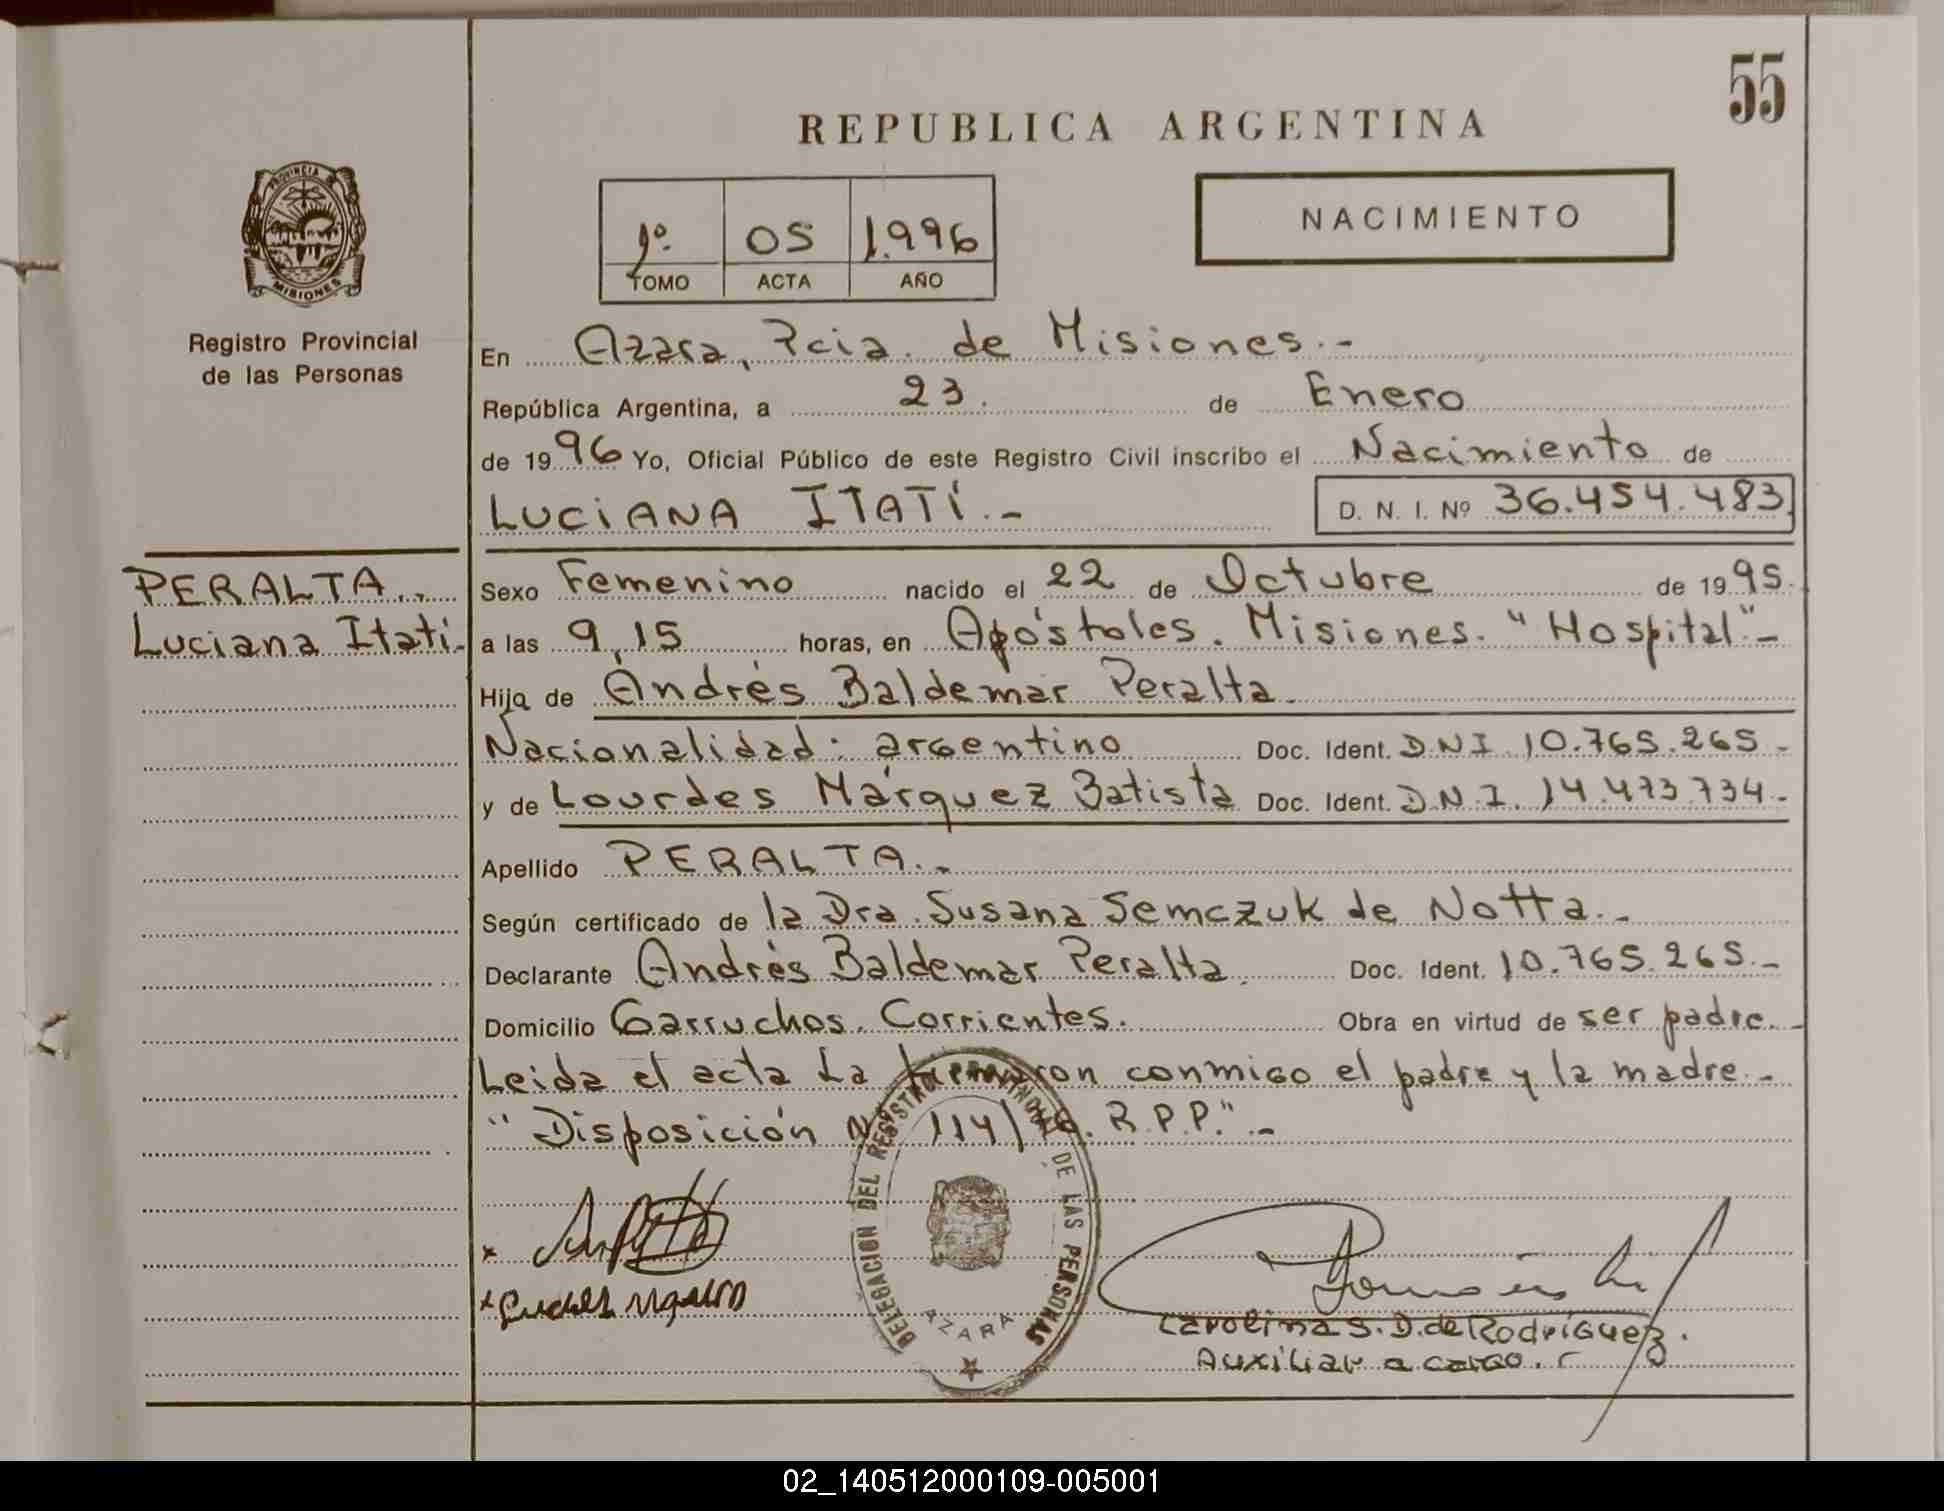 55
REPUBLICA ARGENTINA
PROVINCIA DE
MISIONES
1º 05 1.996
TOMO ACTA AÑO
NACIMIENTO
Registro Provincial
de las Personas
En Azara, Pcia. de Misiones.-
República Argentina, a 23. de Enero
de 1996 Yo, Oficial Público de este Registro Civil inscribo el Nacimiento de
LUCIANA ITATÍ.- D. N. I. Nº 36.454.483
PERALTA..
Luciana Itatí-
Sexo Femenino nacido el 22 de Octubre de 1995.
a las 9,15 horas, en Apóstoles. Misiones. "Hospital"-
Hija de Andrés Baldemar Peralta
Nacionalidad: argentino Doc. Ident. D.N.I. 10.765.265-
y de Lourdes Márquez Batista Doc. Ident. D.N.I. 14.473.734-
Apellido PERALTA.-
Según certificado de la Dra. Susana Semczuk de Notta.-
Declarante Andrés Baldemar Peralta. Doc. Ident. 10.765.265.-
Domicilio Garruchos. Corrientes. Obra en virtud de ser padre.-
Leida el acta la firmaron conmigo el padre y la madre.-
"Disposición Nº 114/ R.P.P."-
DELEGACION DEL REGISTRO PROVINCIAL DE LAS PERSONAS
AZARA
Carolina S. D. de Rodríguez.
Auxiliar a cargo.
02_140512000109-005001